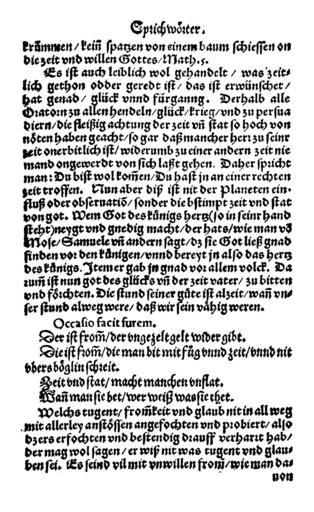 Sprichwörter.
krümmen / kein̄ spatzen von einem baum schiessen on
die zeit vnd willen Gottes / Math. 5.
Es ist auch leiblich wol gehandelt / was zeit-
lich gethon odder geredt ist / das ist erwünschet /
hat genad / glück vnnd fürganng. Derhalb alle
Oratorn zu allen hendeln / glück / krieg / vnd zu persua
diern / die fleißig achtung der zeit vn̄ stat so hoch von
nöten haben geacht / so gar daß mancher herr zu seiner
zeit onerbitlich ist / widerumb zu einer andern zeit nie
mand ongewerdt von sich laßt gehen. Daher spricht
man: Du bist wol kom̄en / Du hast jn an einer rechten
zeit troffen. Nun aber diß ist nit der Planeten ein-
fluß oder obseruatiō / sonder die bstimpt zeit vnd stat
von got. Wem Got des künigs hertz (so in seiner hand
steht) neygt vnd gnedig macht / der hats / wie man vō
Mose / Samuele vn̄ andern sagt / dz sie Got ließ gnad
finden vor den künigen / vnnd bereyt jn also das hertz
des künigs. Item er gab jn gnad vor allem volck. Da
rum̄ ist nun got des glücks vn̄ der zeit vater / zu bitten
vnd förchten. Die stund seiner güte ist alzeit / wañ vn-
ser stund alweg were / daß wir sein vähig weren.
Occasio facit furem.
Der ist from̄ / der vngezelt gelt wider gibt.
Die ist from̄ / die man bit mit füg vnnd zeit / vnnd nit
vbers böglin schreit.
Zeit vnd stat / macht manchen vnflat.
Wañ man sie bet / wer weiß was sie thet.
Welchs tugent / from̄keit vnd glaub nit in all weg
mit allerley anstössen angefochten vnd probiert / also
dz ers erfochten vnd bestendig drauff verharit hab /
der mag wol sagen / er wiß nit was tugent vnd glau-
ben sei. Es seind vil mit vnwillen from̄ / wie man da-
von